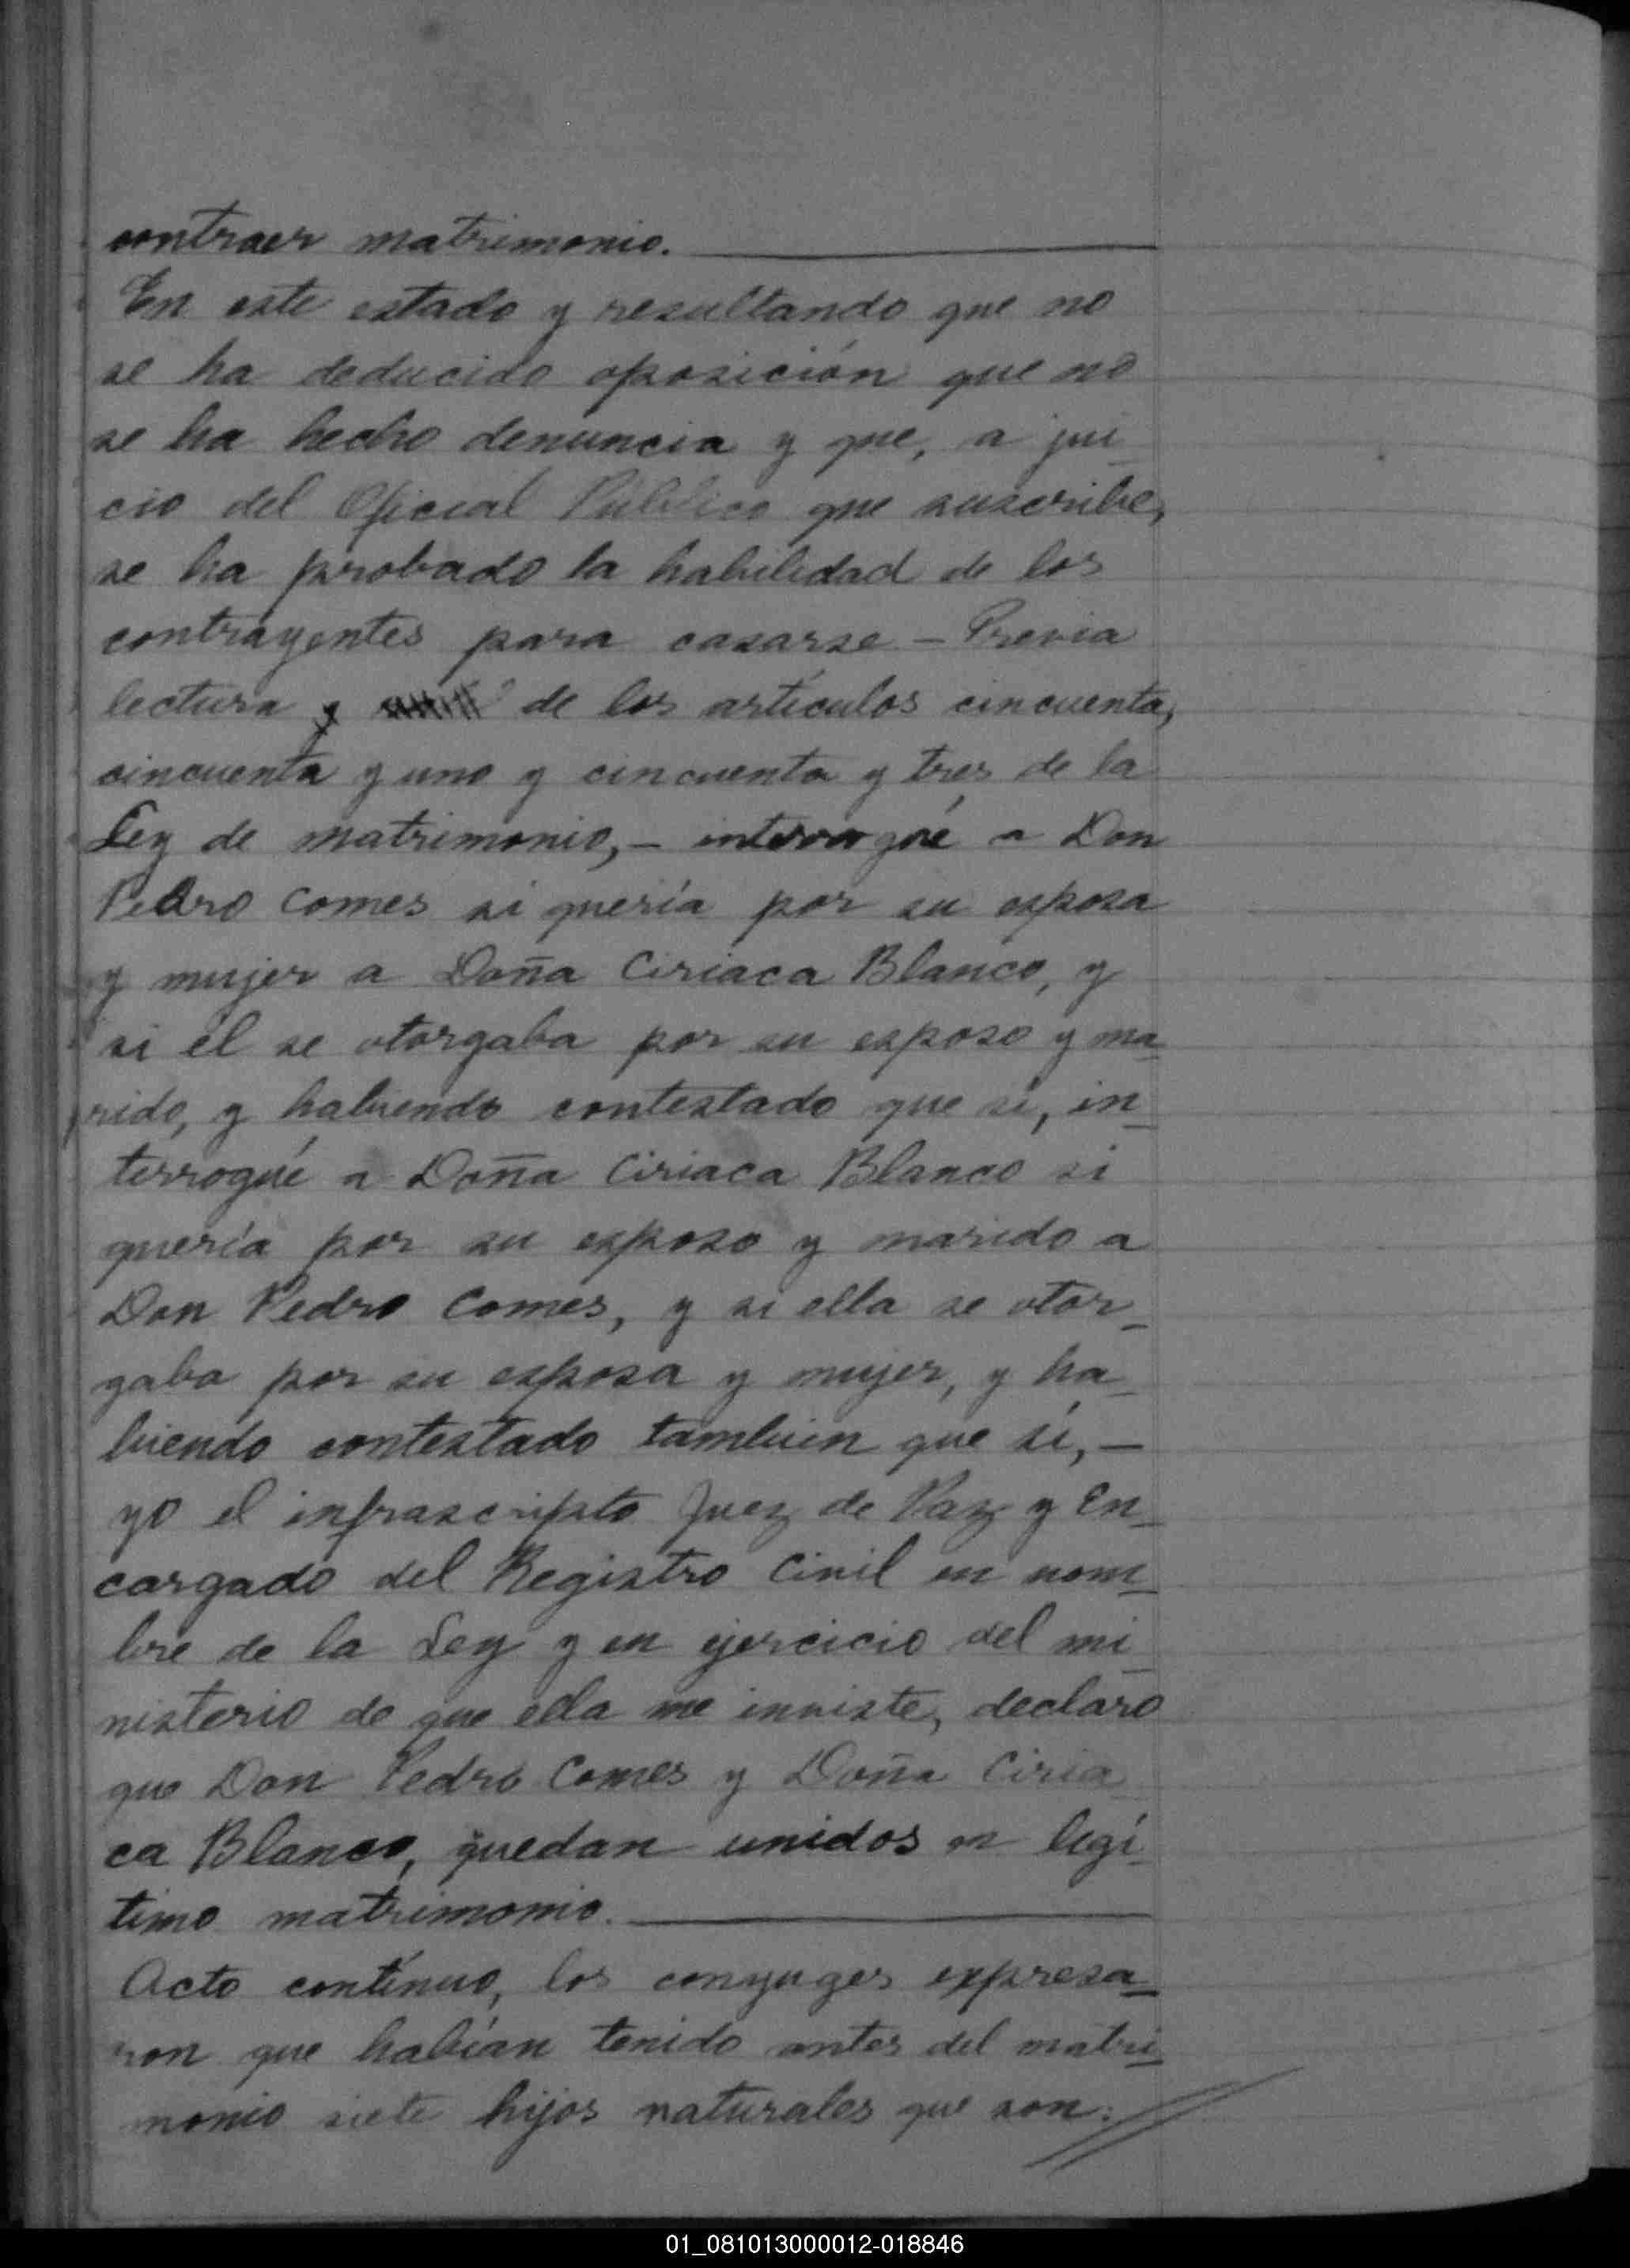 contraer matrimonio.
En este estado y resultando que no
se ha deducido oposición que no
se ha hecho denuncia y que, a jui_
cio del Oficial Público que suscribe,
se ha probado la habilidad de los
contrayentes para casarse. - Previa
lectura y de los artículos cincuenta,
cincuenta y uno y cincuenta y tres de la
Ley de matrimonio, - interrogué a Don
Pedro Comes si quería por su esposa
y mujer a Doña Ciriaca Blanco, y
si él se otorgaba por su esposo y ma_
rido, y habiendo contestado que sí, in_
terrogué a Doña Ciriaca Blanco si
quería por su esposo y marido a
Don Pedro Comes, y si ella se otor_
gaba por su esposa y mujer, y ha_
biendo contestado tambien que sí, -
yo el infrascripto Juez de Paz y En_
cargado del Registro Civil en nom_
bre de la Ley y en ejercicio del mi_
nisterio de que ella me inviste, declaro
que Don Pedro Comes y Doña Ciria_
ca Blanco, quedan unidos en legí_
timo matrimonio.
Acto contínuo, los conyuges expresa_
ron que habían tenido antes del matri_
monio siete hijos naturales que son: //
01_081013000012-018846